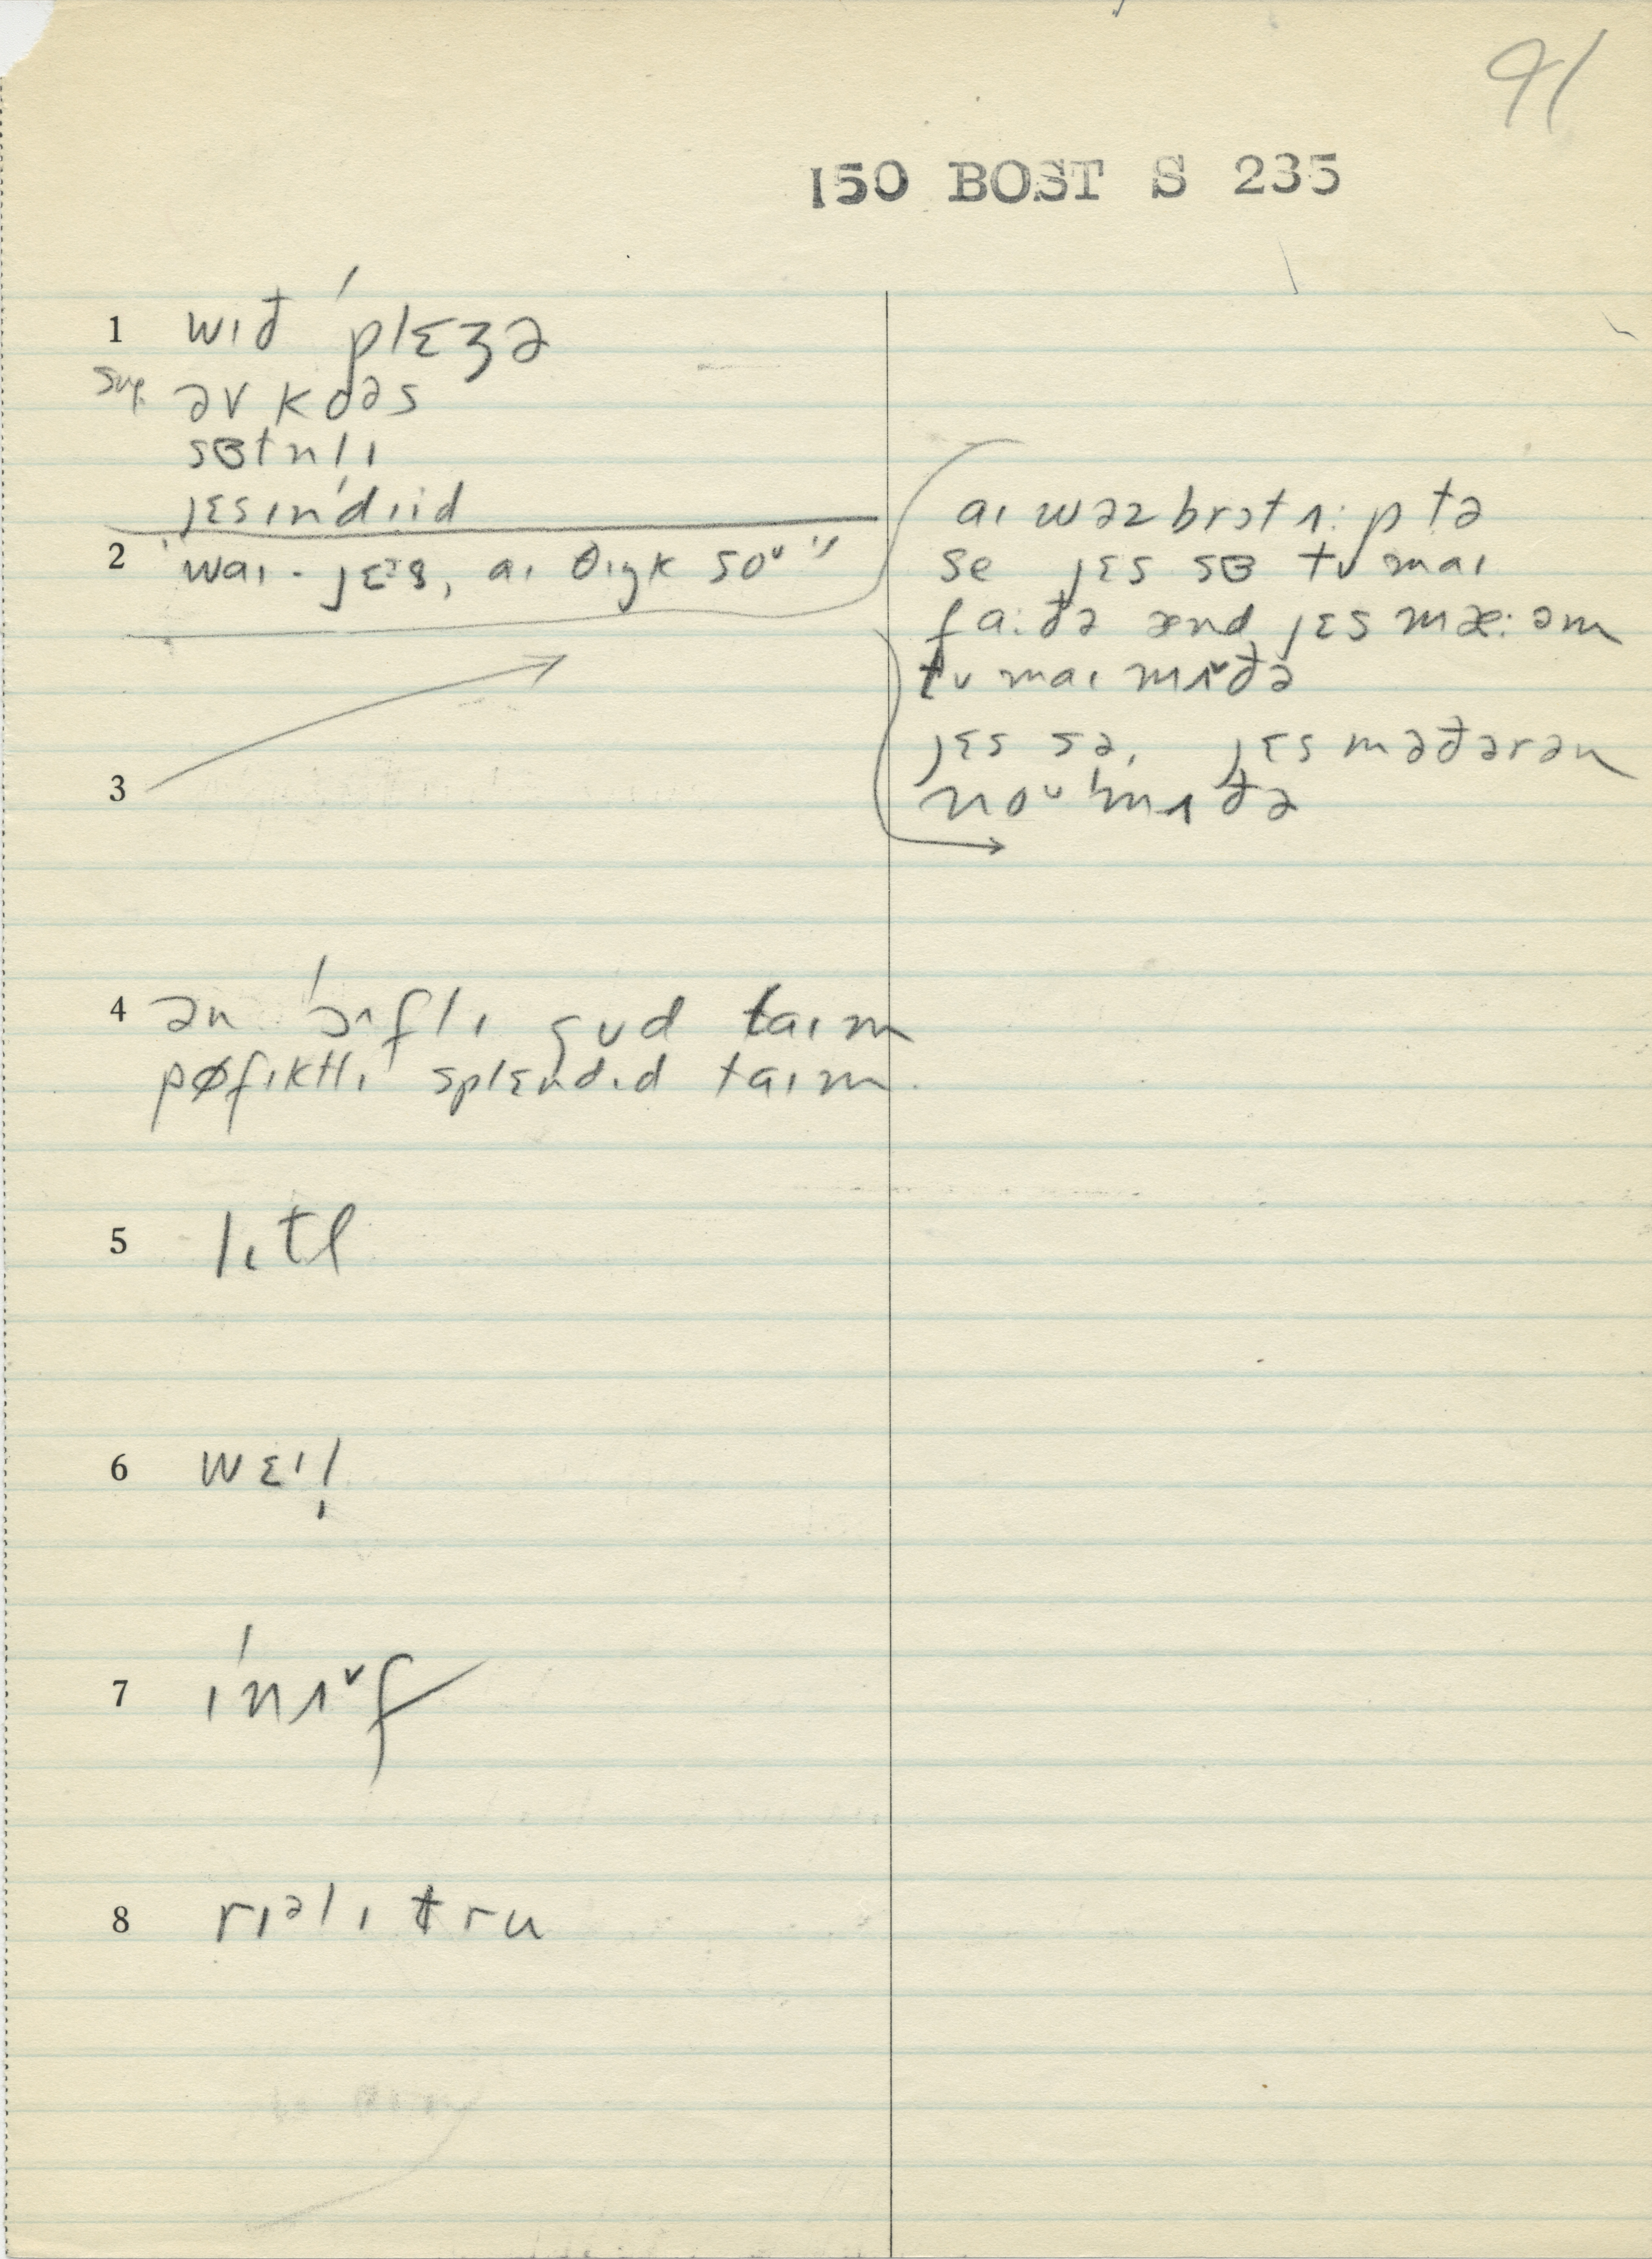 91
150 BOST S 235
1 wɪđ ˈplɛʒə
sug. əv kɒəs
sɞtnlɪ
jɛsɪnˈdɪid
2 "waɪ - jɛᵊs, aɪ θɪŋk soᵘ"
aɪ wəz brɔt ʌ:p tə
se jɛs sɞ tʊ maɪ
fa:đə ænd jɛs mæ:əm
tʊ maɪ mʌˇđə
jɛs sə, jɛs məđərən
noᵘ ˈmʌđə
3
4 ən ˈɔˆflɪ gʊd taɪm
pøfɪktlɪ splɛndɪd taɪm.
5 lɪtl
6 wɛˈl!
7 ɪˈnʌˇf
8 rɪᵊlɪ tru